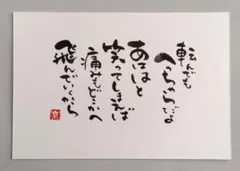 転んでも
へっちゃらだよ
あははと
笑ってしまえば
痛みもどこかへ
飛んでいくから